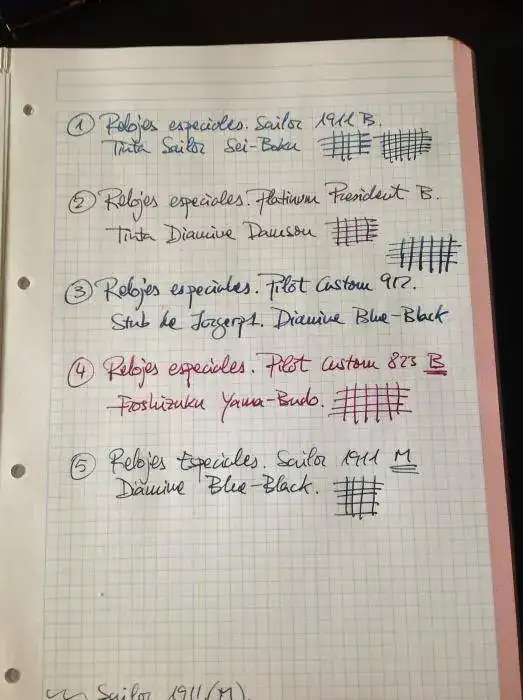 ① Relojes especiales. Sailor 1911 B.
Tinta Sailor Sei-Boku
② Relojes especiales. Platinum President B.
Tinta Diamine Damson
③ Relojes especiales. Pilot Custom 912.
Stub de Jorgerp1. Diamine Blue-Black
④ Relojes especiales. Pilot Custom 823 B
Iroshizuku Yama-Budo.
⑤ Relojes Especiales. Sailor 1911 M
Diamine Blue-Black.
Sailor 1911 (M).